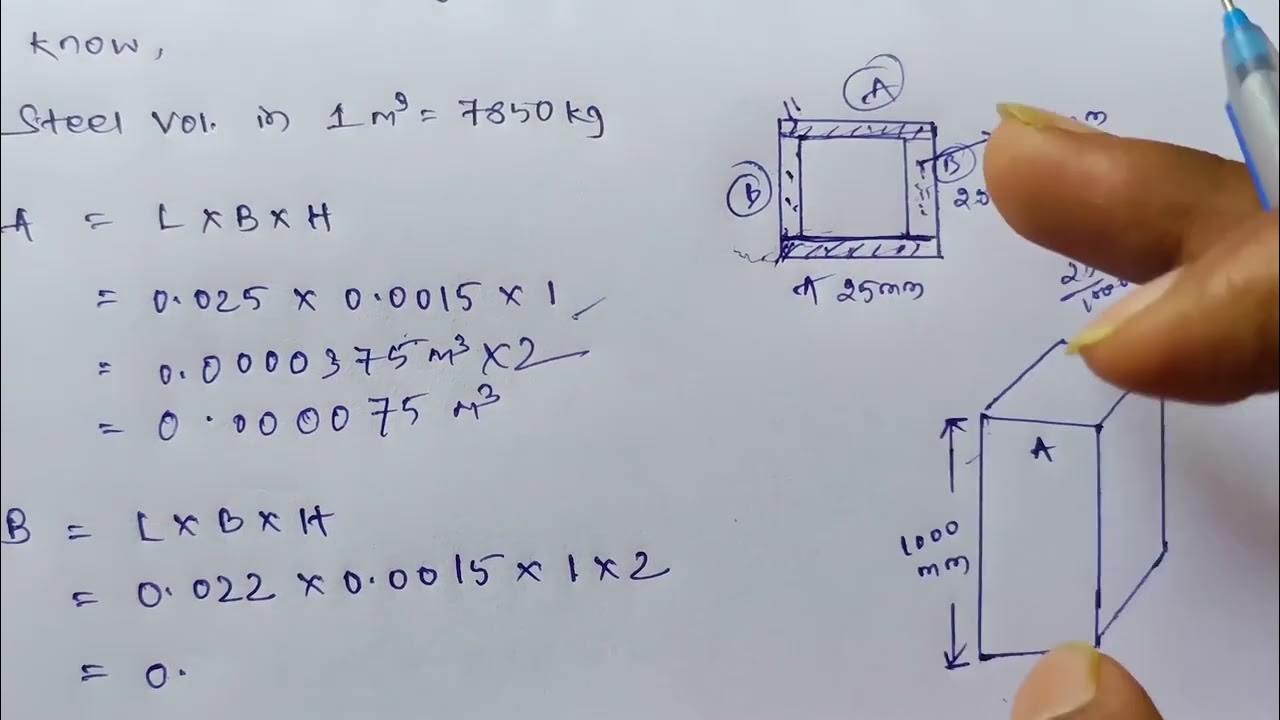 Know,
Steel Vol. in 1 m³ = 7850 kg
A = L x B x H
= 0.025 x 0.0015 x 1
= 0.0000375 m³ x 2
= 0.000075 m³
B = L x B x H
= 0.022 x 0.0015 x 1 x 2
= 0.
A
B
B
A 25mm
A
1000
mm